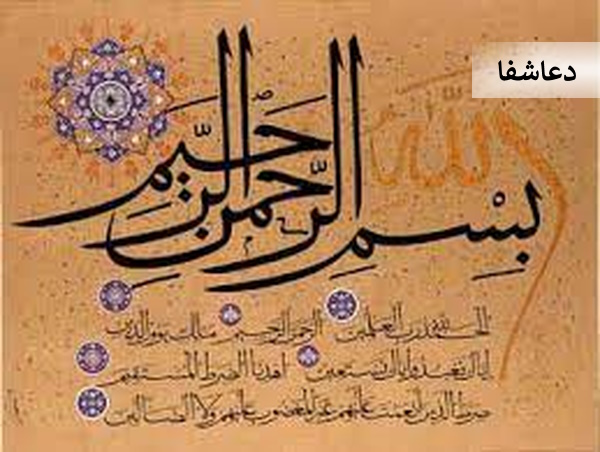 دعاشفا
بسم الله الرحمن الرحیم
الحمد لله رب العالمین الرحمن الرحیم مالک یوم الدین
ایاک نعبد وایاک نستعین اهدنا الصرط المستقیم
صرط الذین انعمت علیهم غیر المغضوب علیهم ولا الضالین